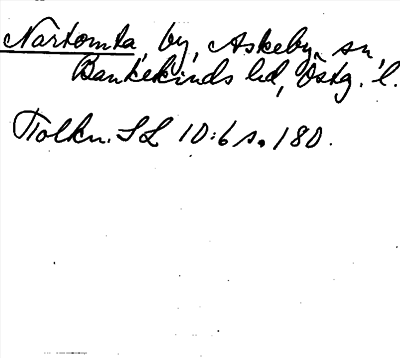 Närtomta, by, Askeby sn,
Bankekinds hd, Östg. l.
Tolkn. SL 10:6 s. 180.